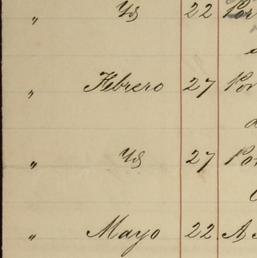 " Yd 22 Por
" Febrero 27 Por
" Yd 27 Por
" Mayo 22 A